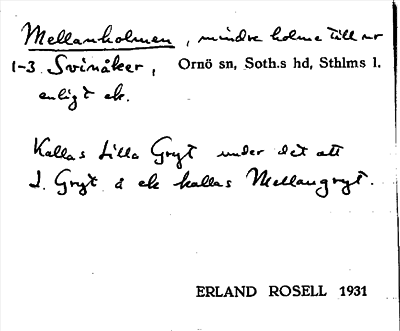 Mellanholmen, mindre holme till nr
1-3 Svinåker, Ornö sn, Soth.s hd, Sthlms l.
enligt ek.
Kallas Lilla Gryt under det att
I. Gryt å ek kallas Mellangryt.
ERLAND ROSELL 1931